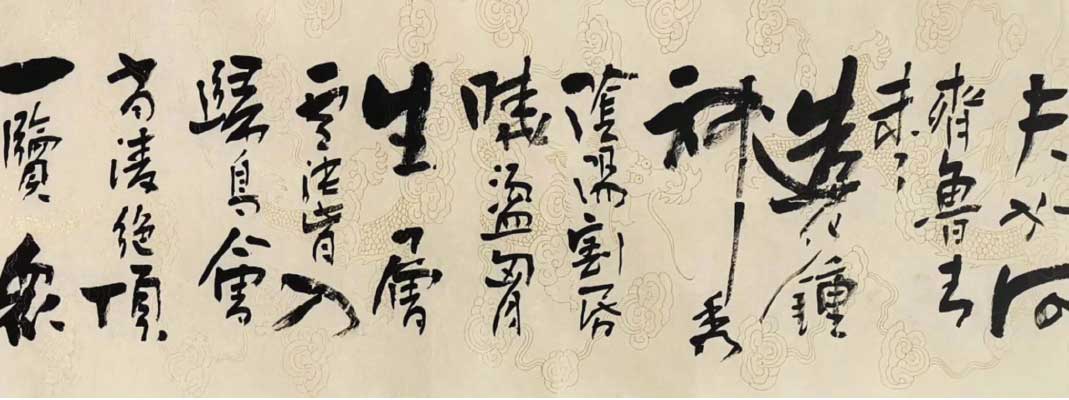 夫如何
齊魯青
未了
造化鍾
神秀
陰陽割昏
曉盪胷
生層
雲決眥入
歸鳥會
當淩絕頂
一覽衆